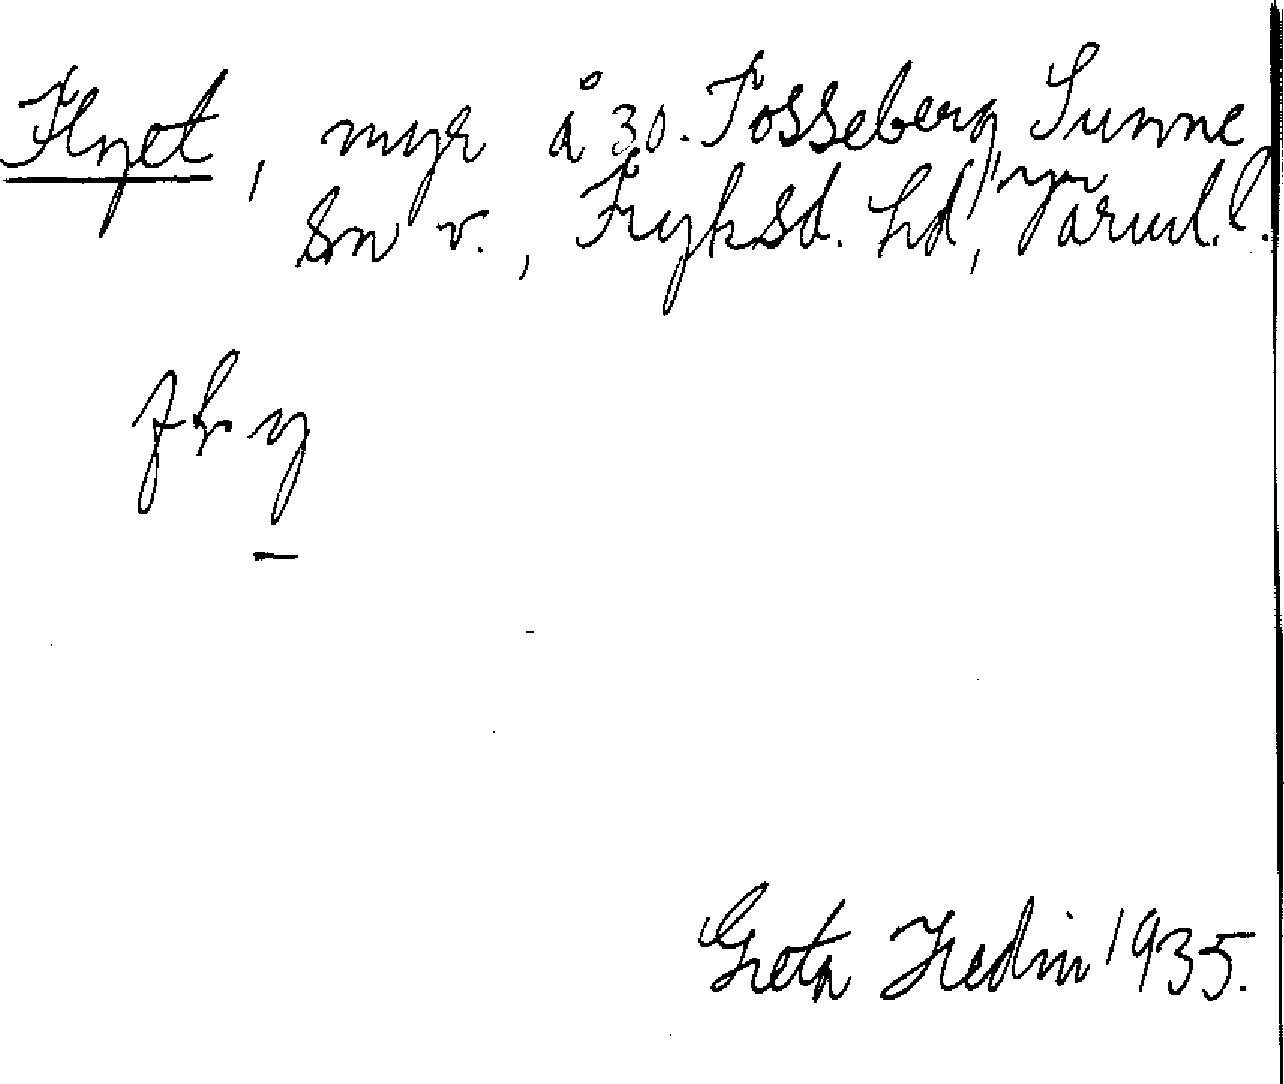 Flyet, myr å 30. Fosseberg, Sunne
sn v., Fryksd. hd, Värml. l.
fly
Greta Hedin 1935.